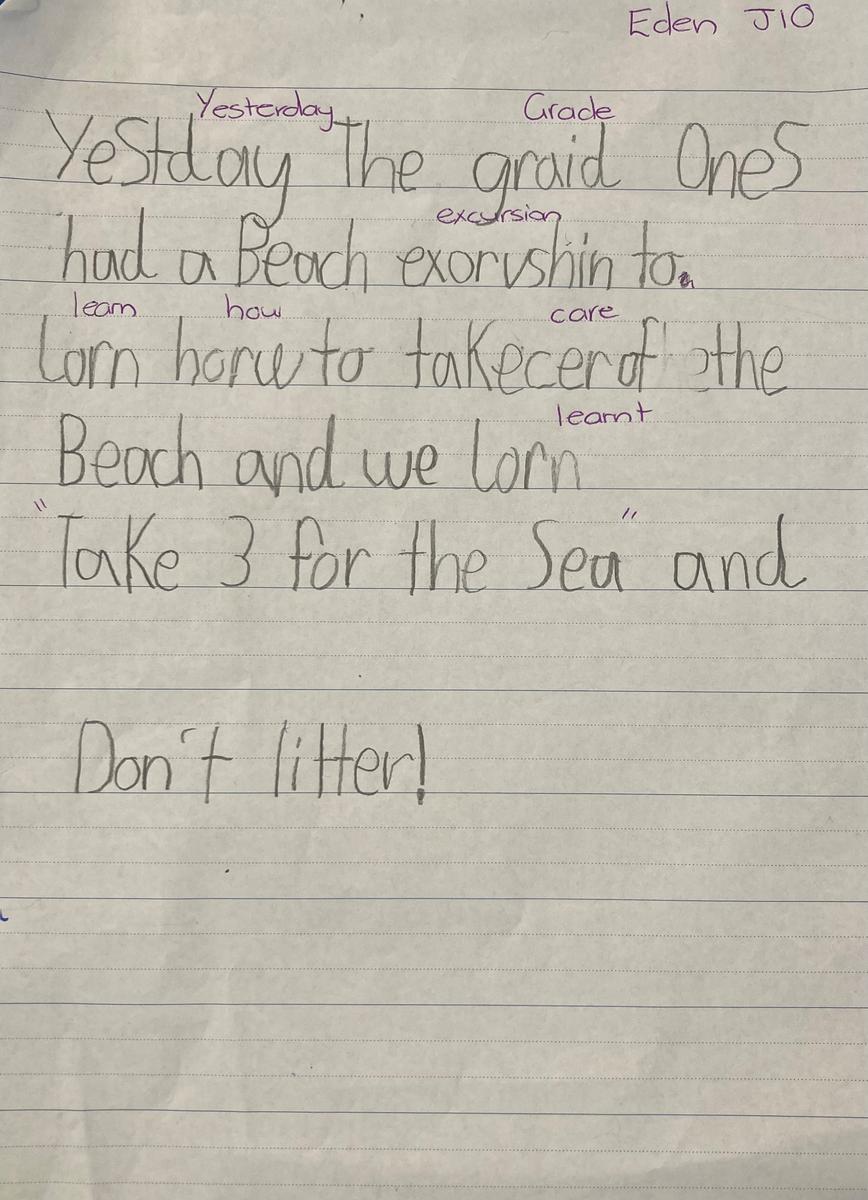 Eden J10
Yesterday Grade
Yestday The graid Ones
excursion
had a Beach exorvshin to.
learn how care
Lorn horw to takecer of the
learnt
Beach and we Lorn
"Take 3 for the Sea" and
Don't litter!